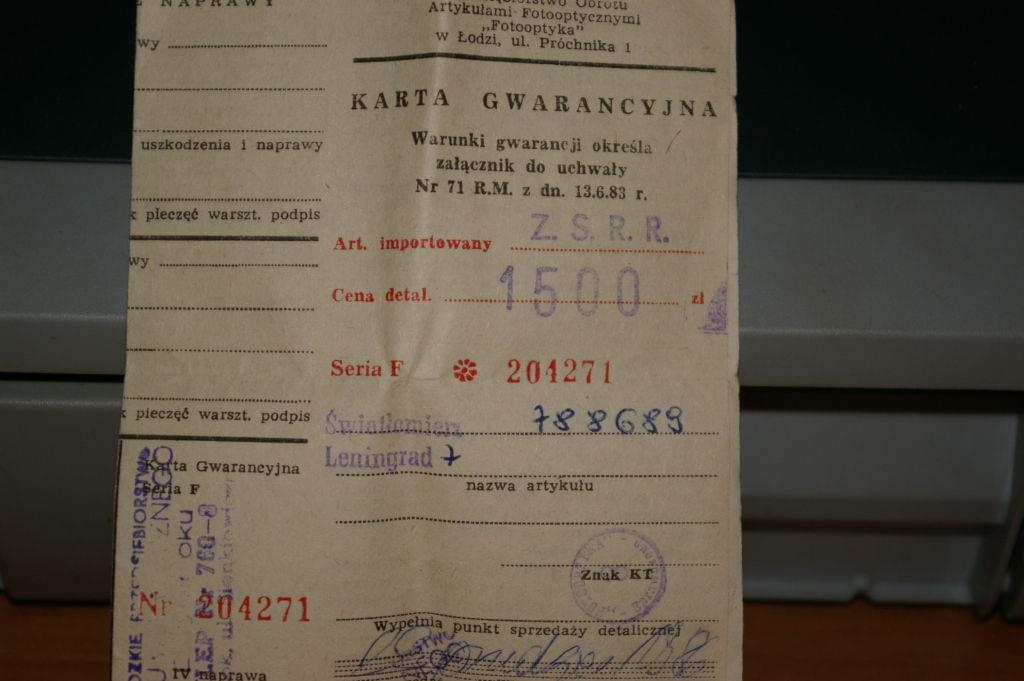 NAPRAWY
wy
uszkodzenia i naprawy
pieczęć warszt. podpis
wy
pieczęć warszt. podpis
Karta Gwarancyjna
Seria F
Nr 204271
IV naprawa
Obrotu
Artykułami Fotooptycznymi
„Fotooptyka”
w Łodzi, ul. Próchnika 1
KARTA GWARANCYJNA
Warunki gwarancji określa
załącznik do uchwały
Nr 71 R.M. z dn. 13.6.83 r.
Art. importowany Z. S. R. R.
Cena detal. 1500 zł
Seria F 204271
Światłomierz 788689
Leningrad 7
nazwa artykułu
Znak KT
Wypełnia punkt sprzedaży detalicznej